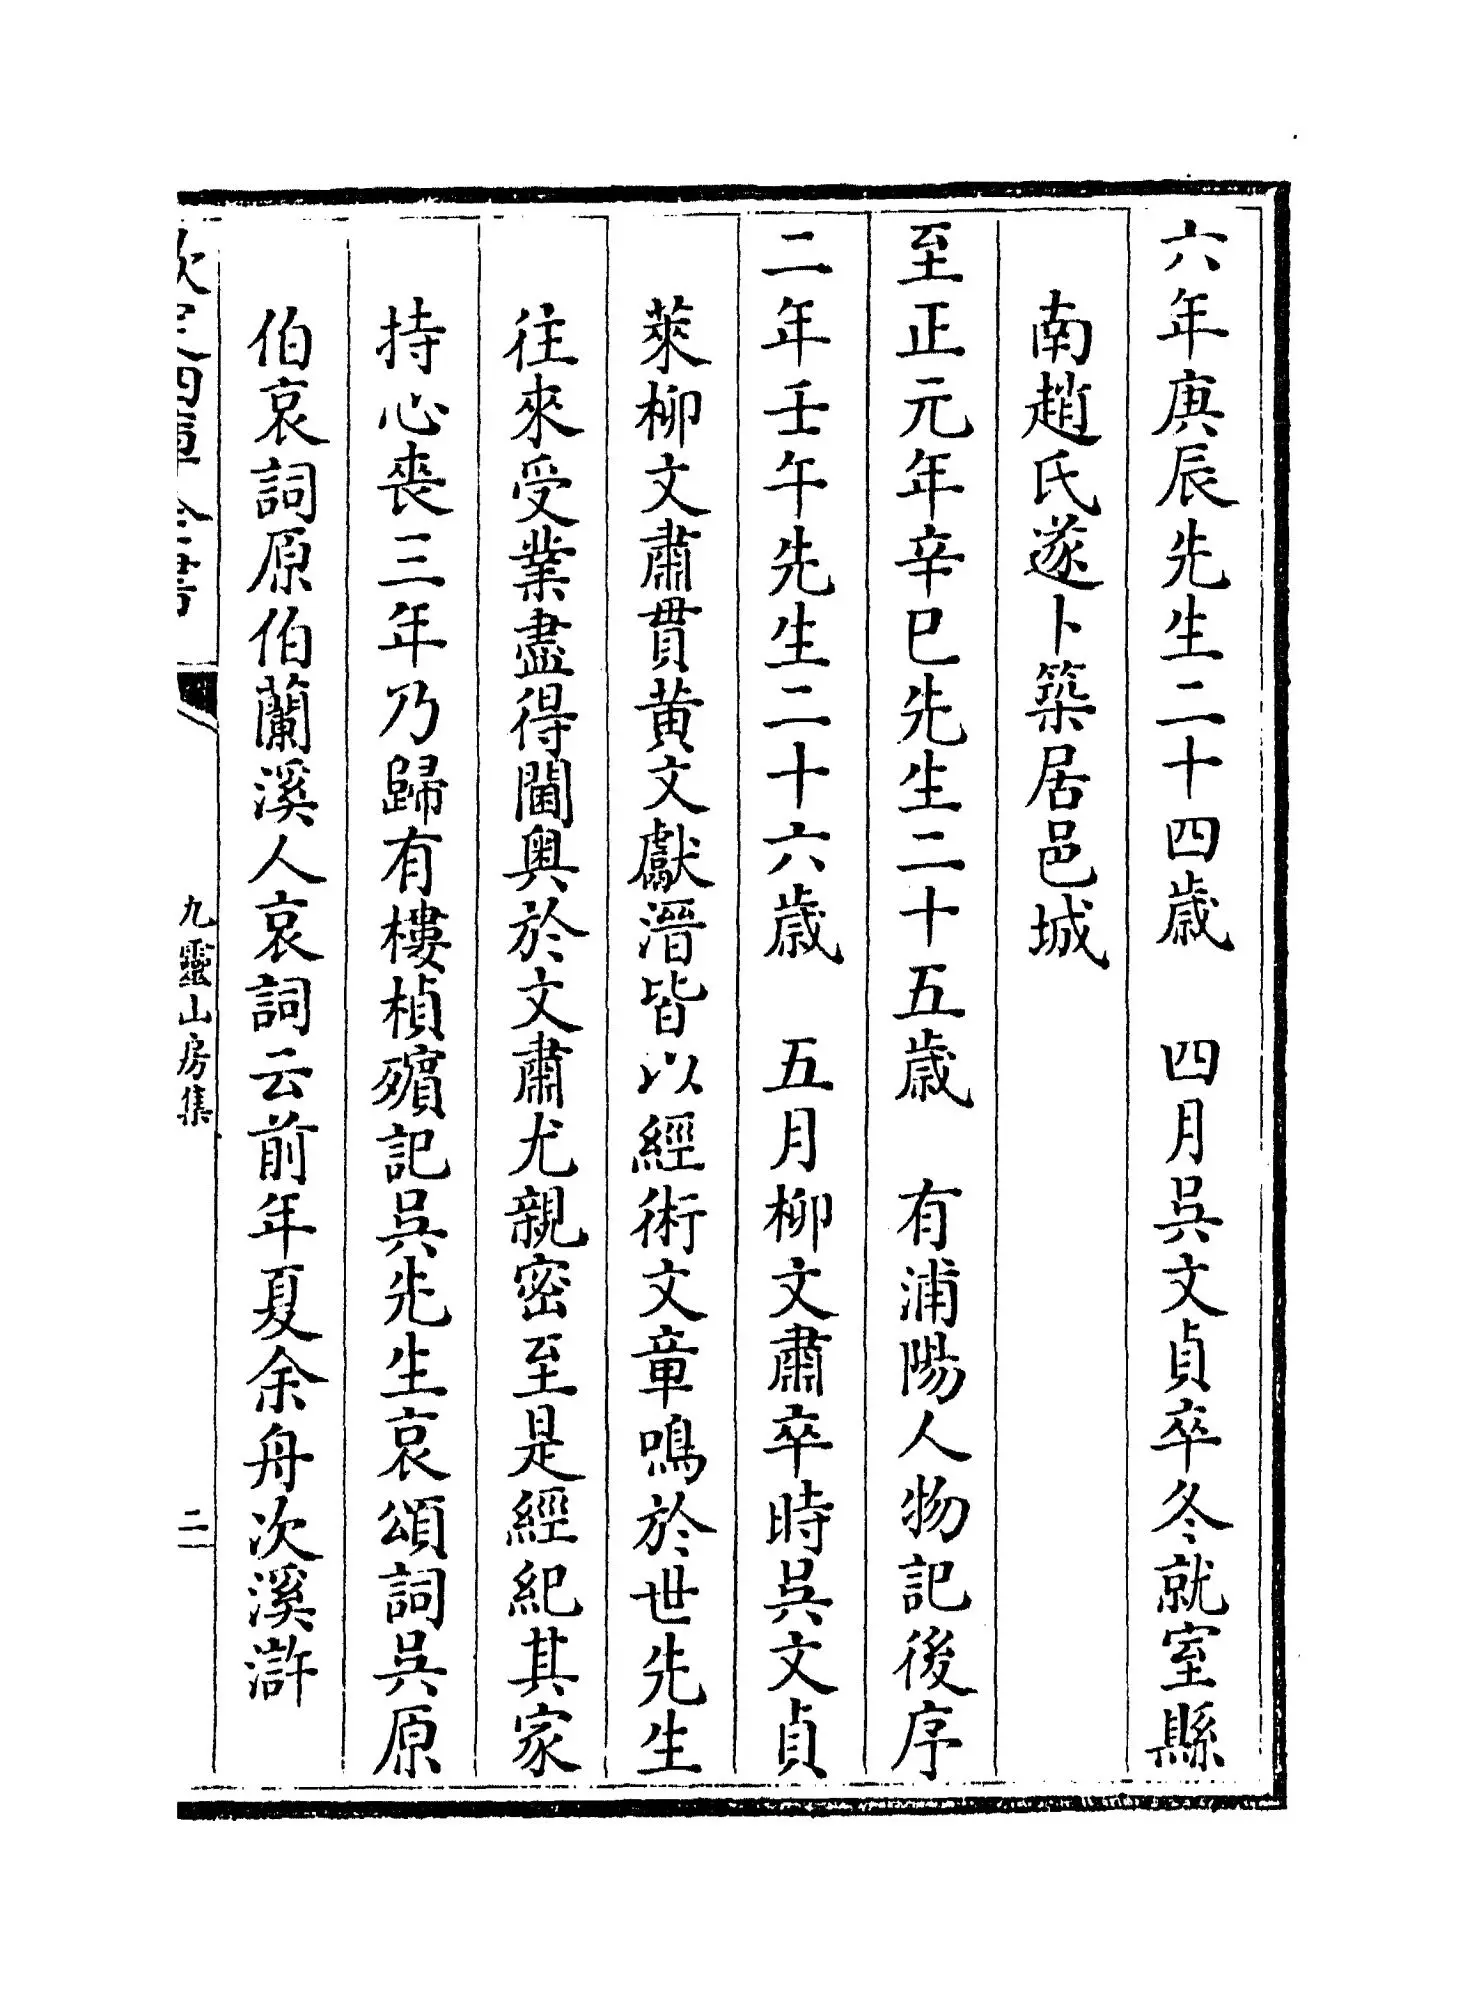 六年庚辰先生二十四歳　四月吳文貞卒冬就室縣
南趙氏遂卜築居邑城
至正元年辛巳先生二十五歳　有浦陽人物記後序
二年壬午先生二十六歳　五月柳文肅卒時吳文貞
萊柳文肅貫黄文獻溍皆以經術文章鳴於世先生
往來受業盡得閫奥於文肅尤親密至是經紀其家
持心喪三年乃歸有樓楨殯記吳先生哀頌詞吳原
伯哀詞原伯蘭溪人哀詞云前年夏余舟次溪滸
欽定四庫全書
九靈山房集
二